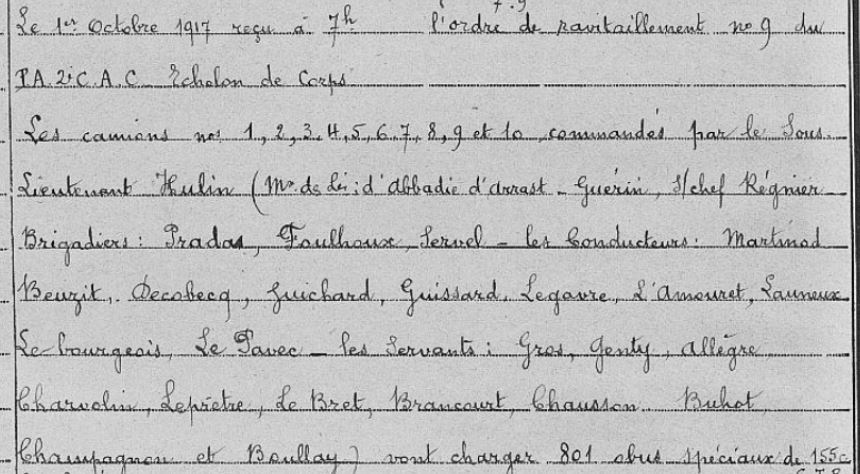 Le 1er Octobre 1917 reçu à 7h l'ordre de ravitaillement no 9 du
P.A. 2e C.A.C. Echelon de Corps
Les camions nos 1, 2, 3, 4, 5, 6, 7, 8, 9 et 10 commandés par le Sous-
Lieutenant Hulin (Mis ds Lis : d'Abbadie d'arrast - Guérin, S/chef Régnier
Brigadiers : Pradas, Foulhoux, Servel - les Conducteurs : Martinod
Beuzit, Decobecq, Guichard, Guissard, Legavre, L'Amouret, Launeux
Le bourgeois, Le Pavec - les Servants : Gros, Genty, Allègre
Charvolin, Leprêtre, Le Bret, Brancourt, Chausson Buhot
Champagnon et Boullay) vont charger 801 obus spéciaux de 155c